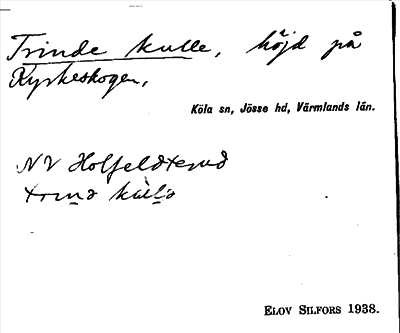 Trinde kulle, höjd på
Kyrkeskogen,
Köla sn, Jösse hd, Värmlands län.
NV Holfeldterud
ELOV SILFORS 1938.